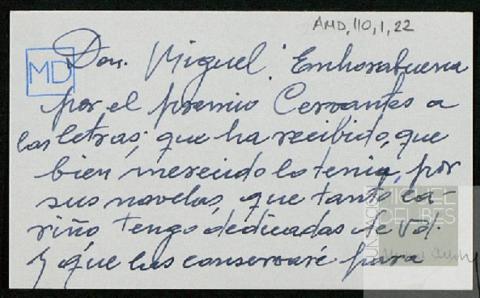 AMD, 110, 1, 22
MD
Don Miguel: Enhorabuena
por el premio Cervantes a
las letras; que ha recibido, que
bien merecido lo tenia, por
sus novelas, que tanto ca-
riño tengo dedicadas de Vd.
y que las conservaré para
FUNDACIÓN
MIGUEL
DELIBES